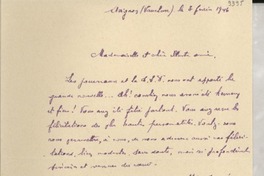 (Vaucluse) le 2 février 1946
Mademoiselle et chère illustre amie,
Les journaux et la T.S.F. nous ont apporté la
grande nouvelle... Ah!
et fiers! Vous avez été fêtée partout. Vous avez eu
félicitations de plus hautes personnalités. Voulez-vous
nous permettre, à nous, de vous adresser nos félici-
tations, bien modestes sans doute, mais si profondément
sincères et venues du cœur.